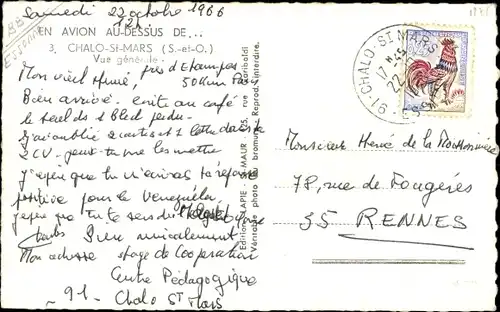 Samedi 22 octobre 1966
12h
EN AVION AU-DESSUS DE...
3. CHALO-ST-MARS (S.-et-O.)
Vue générale
près d'Etampes
50 km Paris
Mon vieil Hervé,
Bien arrivé - écrite au café
le seul du bled perdu -
J'ai oublié 2 cartes et 1 lettre dans ta
2 CV - peux-tu me les mettre
J'espère que tu m'enverras ta réponse
positive pour le Venezuela
J'espère que tu te sens
Bien amicalement
Mon adresse stage de Coopération
Centre Pédagogique
- 91 - Chalo St Mars
Editions LAPIE - ST-MAUR 25, rue Garibaldi
Véritable photo au bromure. Reprod. interdite.
91 CHALO-ST MARS
17 H 45
22-
ESSONNE
Monsieur Hervé de la
78, rue de Fougères
35 RENNES